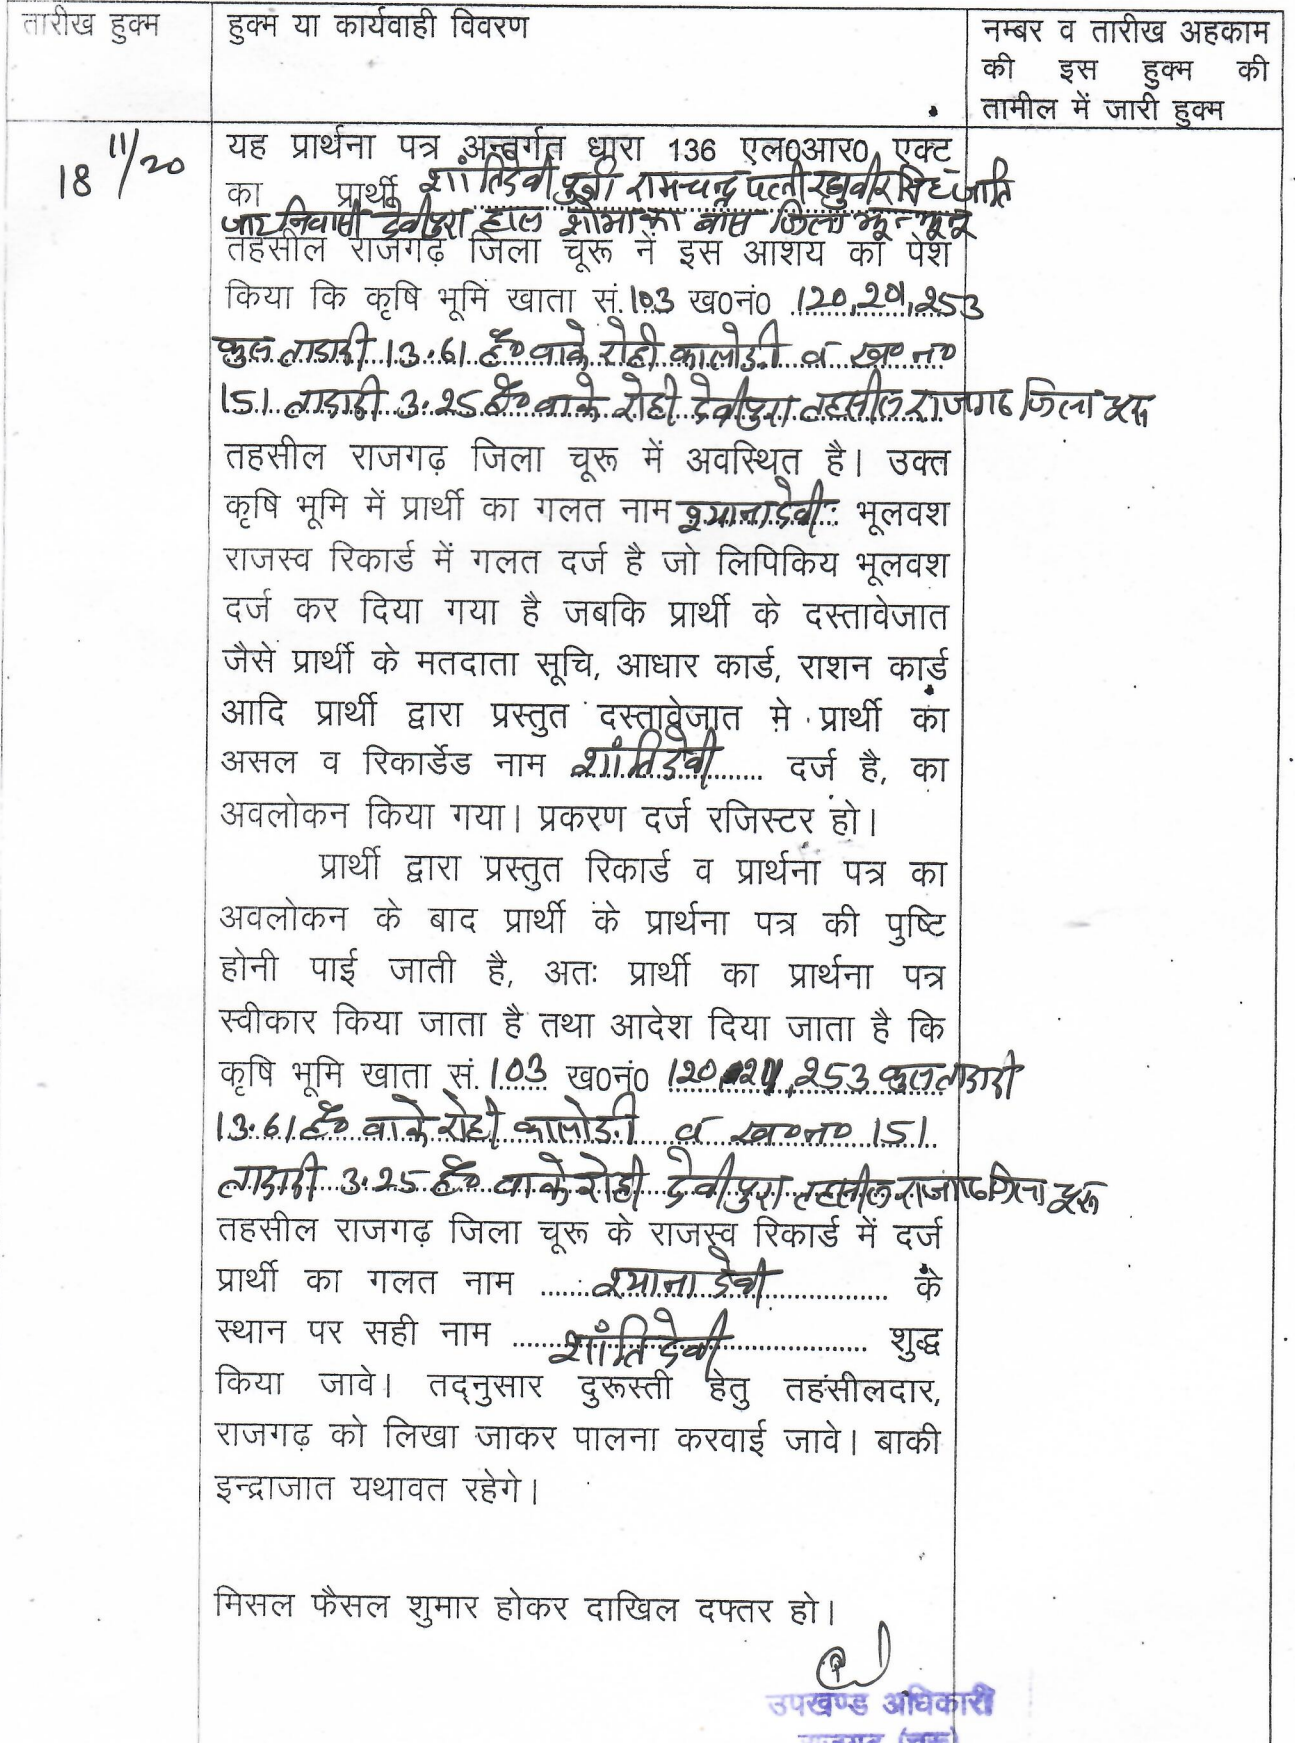 तारीख हुक्म
हुक्म या कार्यवाही विवरण
नम्बर व तारीख अहकाम
की इस हुक्म की
तामील में जारी हुक्म
18 11/20
यह प्रार्थना पत्र अन्तर्गत धारा 136 एल0आर0 एक्ट
का प्रार्थी शांतिदेवी पुत्री रामचन्द्र पत्नी रघुवीर सिंह जाति
जाट निवासी देवीपुरा हाल का बास जिला झून्झूनू
तहसील राजगढ़ जिला चूरू नें इस आशय का पेश
किया कि कृषि भूमि खाता सं. 103 ख0नं0 120, 253
कुल तादादी 13.61 है० वाके रोही कालोडी व ख०न०
151 तादादी 3.25 है० वाके रोही देवीपुरा तहसील राजगढ जिला चूरू
तहसील राजगढ़ जिला चूरू में अवस्थित है। उक्त
कृषि भूमि में प्रार्थी का गलत नाम श्याना देवी भूलवश
राजस्व रिकार्ड में गलत दर्ज है जो लिपिकिय भूलवश
दर्ज कर दिया गया है जबकि प्रार्थी के दस्तावेजात
जैसे प्रार्थी के मतदाता सूचि, आधार कार्ड, राशन कार्ड
आदि प्रार्थी द्वारा प्रस्तुत दस्तावेजात मे प्रार्थी का
असल व रिकार्डेड नाम शांतिदेवी ....... दर्ज है, का
अवलोकन किया गया। प्रकरण दर्ज रजिस्टर हो।
प्रार्थी द्वारा प्रस्तुत रिकार्ड व प्रार्थना पत्र का
अवलोकन के बाद प्रार्थी के प्रार्थना पत्र की पुष्टि
होनी पाई जाती है, अतः प्रार्थी का प्रार्थना पत्र
स्वीकार किया जाता है तथा आदेश दिया जाता है कि
कृषि भूमि खाता सं. 103 ख0नं0 120, 253 कुल तादादी
13.61 है० वाके रोही कालोडी व ख०न० 151
तादादी 3.25 है० वाके रोही देवीपुरा तहसील राजगढ जिला चूरू
तहसील राजगढ़ जिला चूरू के राजस्व रिकार्ड में दर्ज
प्रार्थी का गलत नाम ....... श्याना देवी ....... के
स्थान पर सही नाम ....... शांति देवी ....... शुद्ध
किया जावे। तद्नुसार दुरूस्ती हेतु तहसीलदार,
राजगढ़ को लिखा जाकर पालना करवाई जावे। बाकी
इन्द्राजात यथावत रहेगे।
मिसल फैसल शुमार होकर दाखिल दफ्तर हो।
उपखण्ड अधिकारी
राजगढ (चूरू)